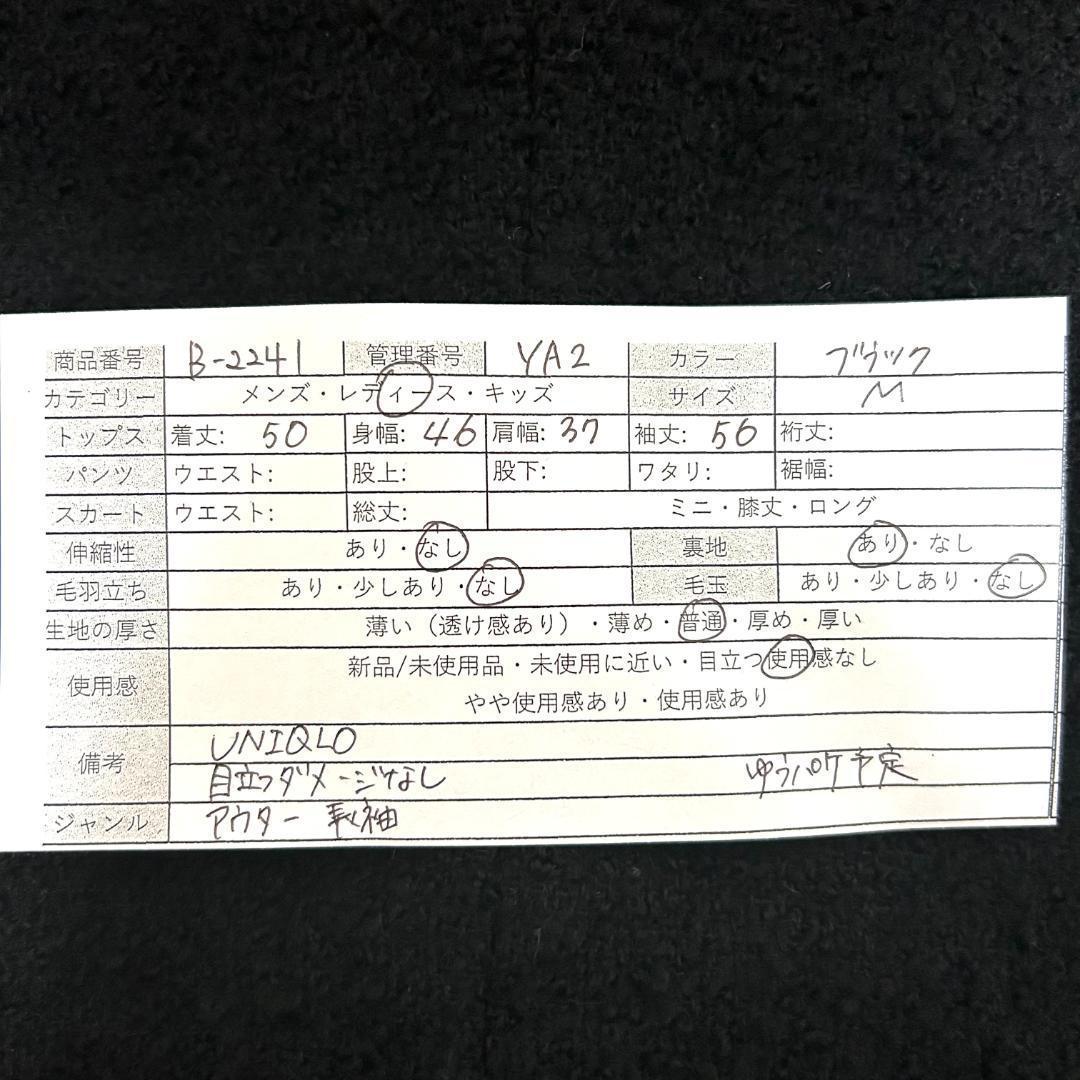 商品番号 B-2241 管理番号 YA2 カラー ブラック
カテゴリー メンズ・レディース・キッズ サイズ M
トップス 着丈: 50 身幅: 46 肩幅: 37 袖丈: 56 裄丈:
パンツ ウエスト: 股上: 股下: ワタリ: 裾幅:
スカート ウエスト: 総丈: ミニ・膝丈・ロング
伸縮性 あり・なし 裏地 あり・なし
毛羽立ち あり・少しあり・なし 毛玉 あり・少しあり・なし
生地の厚さ 薄い（透け感あり）・薄め・普通・厚め・厚い
使用感 新品/未使用品・未使用に近い・目立つ使用感なし
やや使用感あり・使用感あり
備考 UNIQLO
目立つダメージなし ゆうパケ予定
ジャンル アウター 長袖